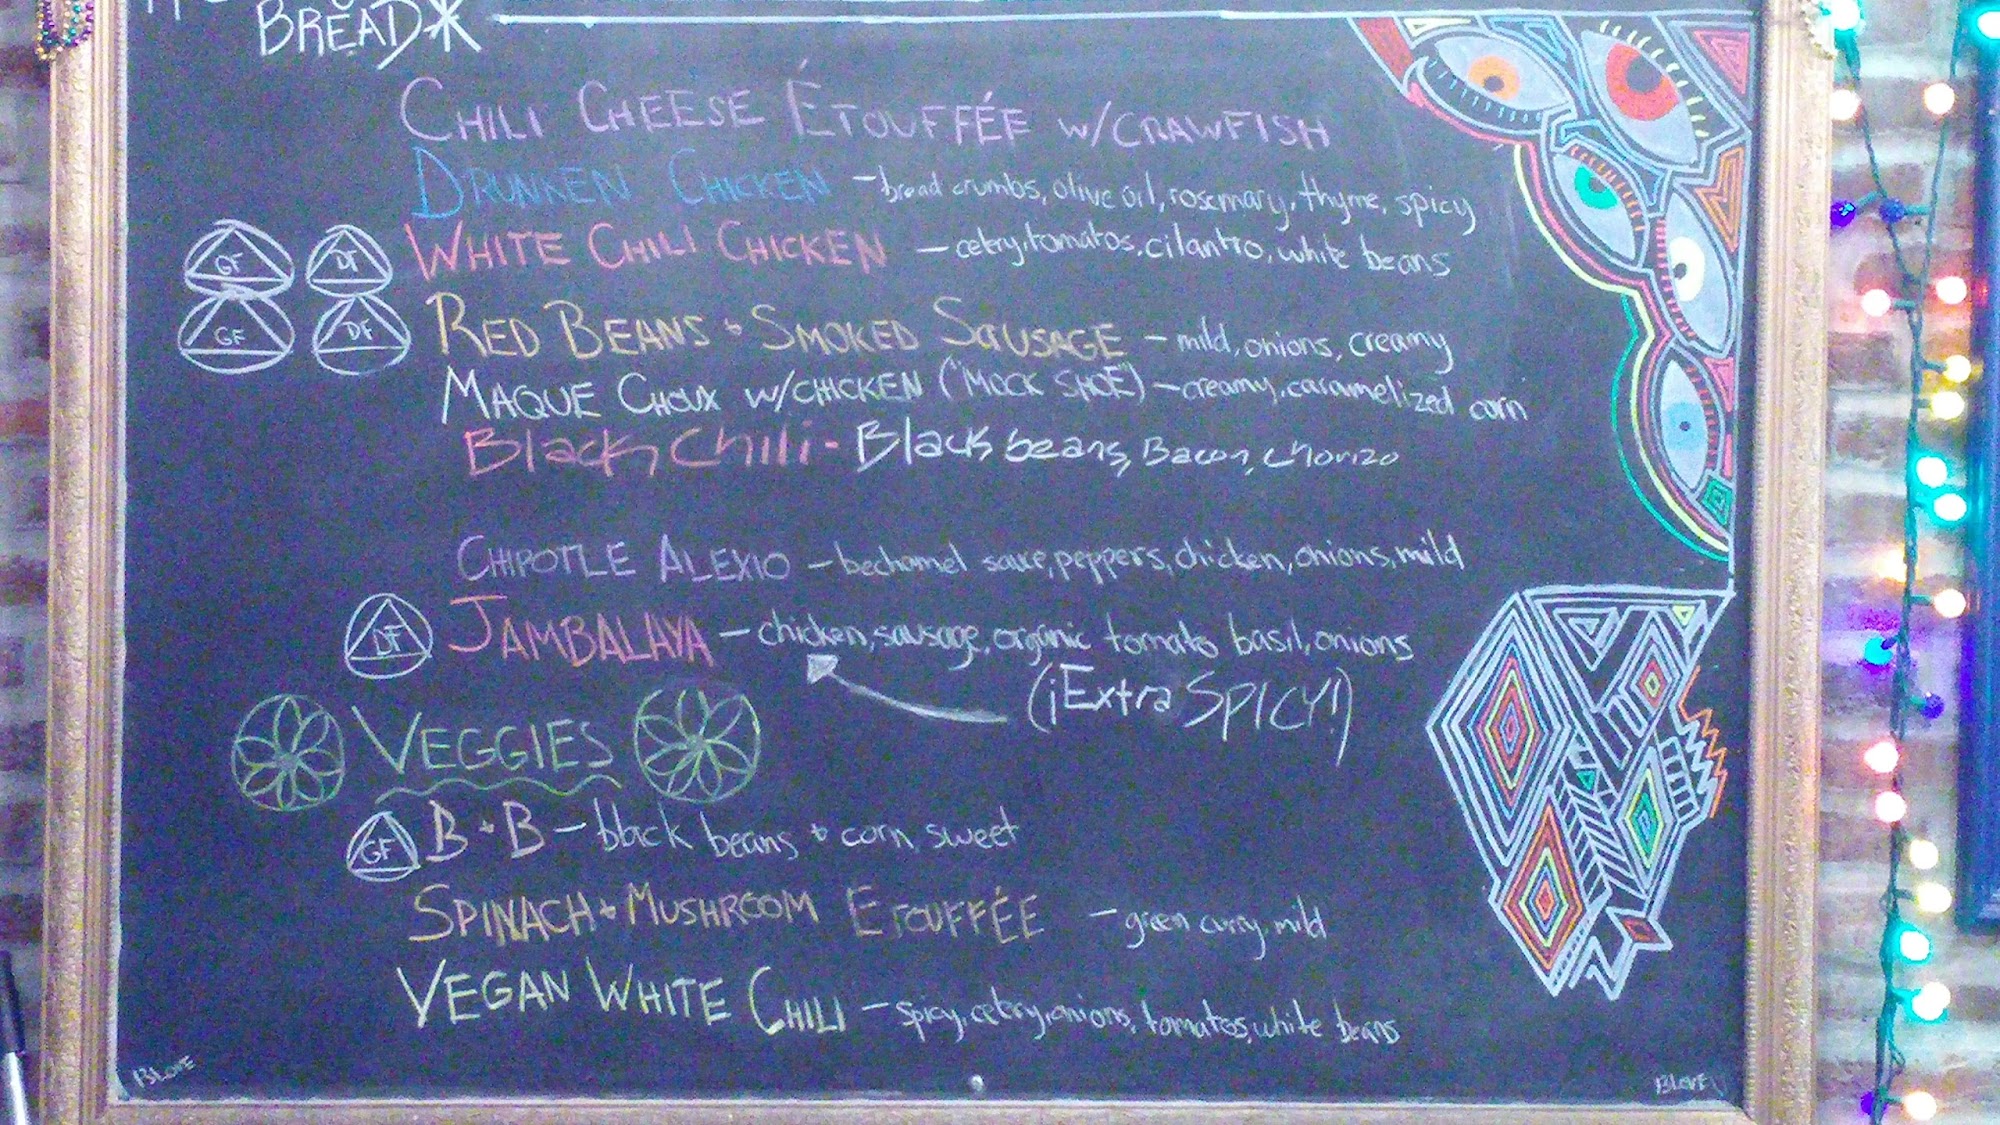 BREAD*
CHILI CHEESE ÉTOUFFÉE W/CRAWFISH
DRUNKEN CHICKEN - bread crumbs, olive oil, rosemary, thyme, spicy
GF DF WHITE CHILI CHICKEN - celery, tomatos, cilantro, white beans
GF DF RED BEANS + SMOKED SAUSAGE - mild, onions, creamy
MAQUE CHOUX W/CHICKEN ("MOCK SHOE") - creamy, caramelized corn
Black Chili - Black beans, Bacon, chorizo
CHIPOTLE ALEXIO - bechamel sauce, peppers, chicken, onions, mild
DF JAMBALAYA - chicken, sausage, organic tomato basil, onions
(¡Extra SPICY!)
VEGGIES
GF B + B - black beans + corn, sweet
SPINACH + MUSHROOM ETOUFFÉE - green curry, mild
VEGAN WHITE CHILI - spicy, celery, onions, tomatos, white beans
BLOVE BLOVE